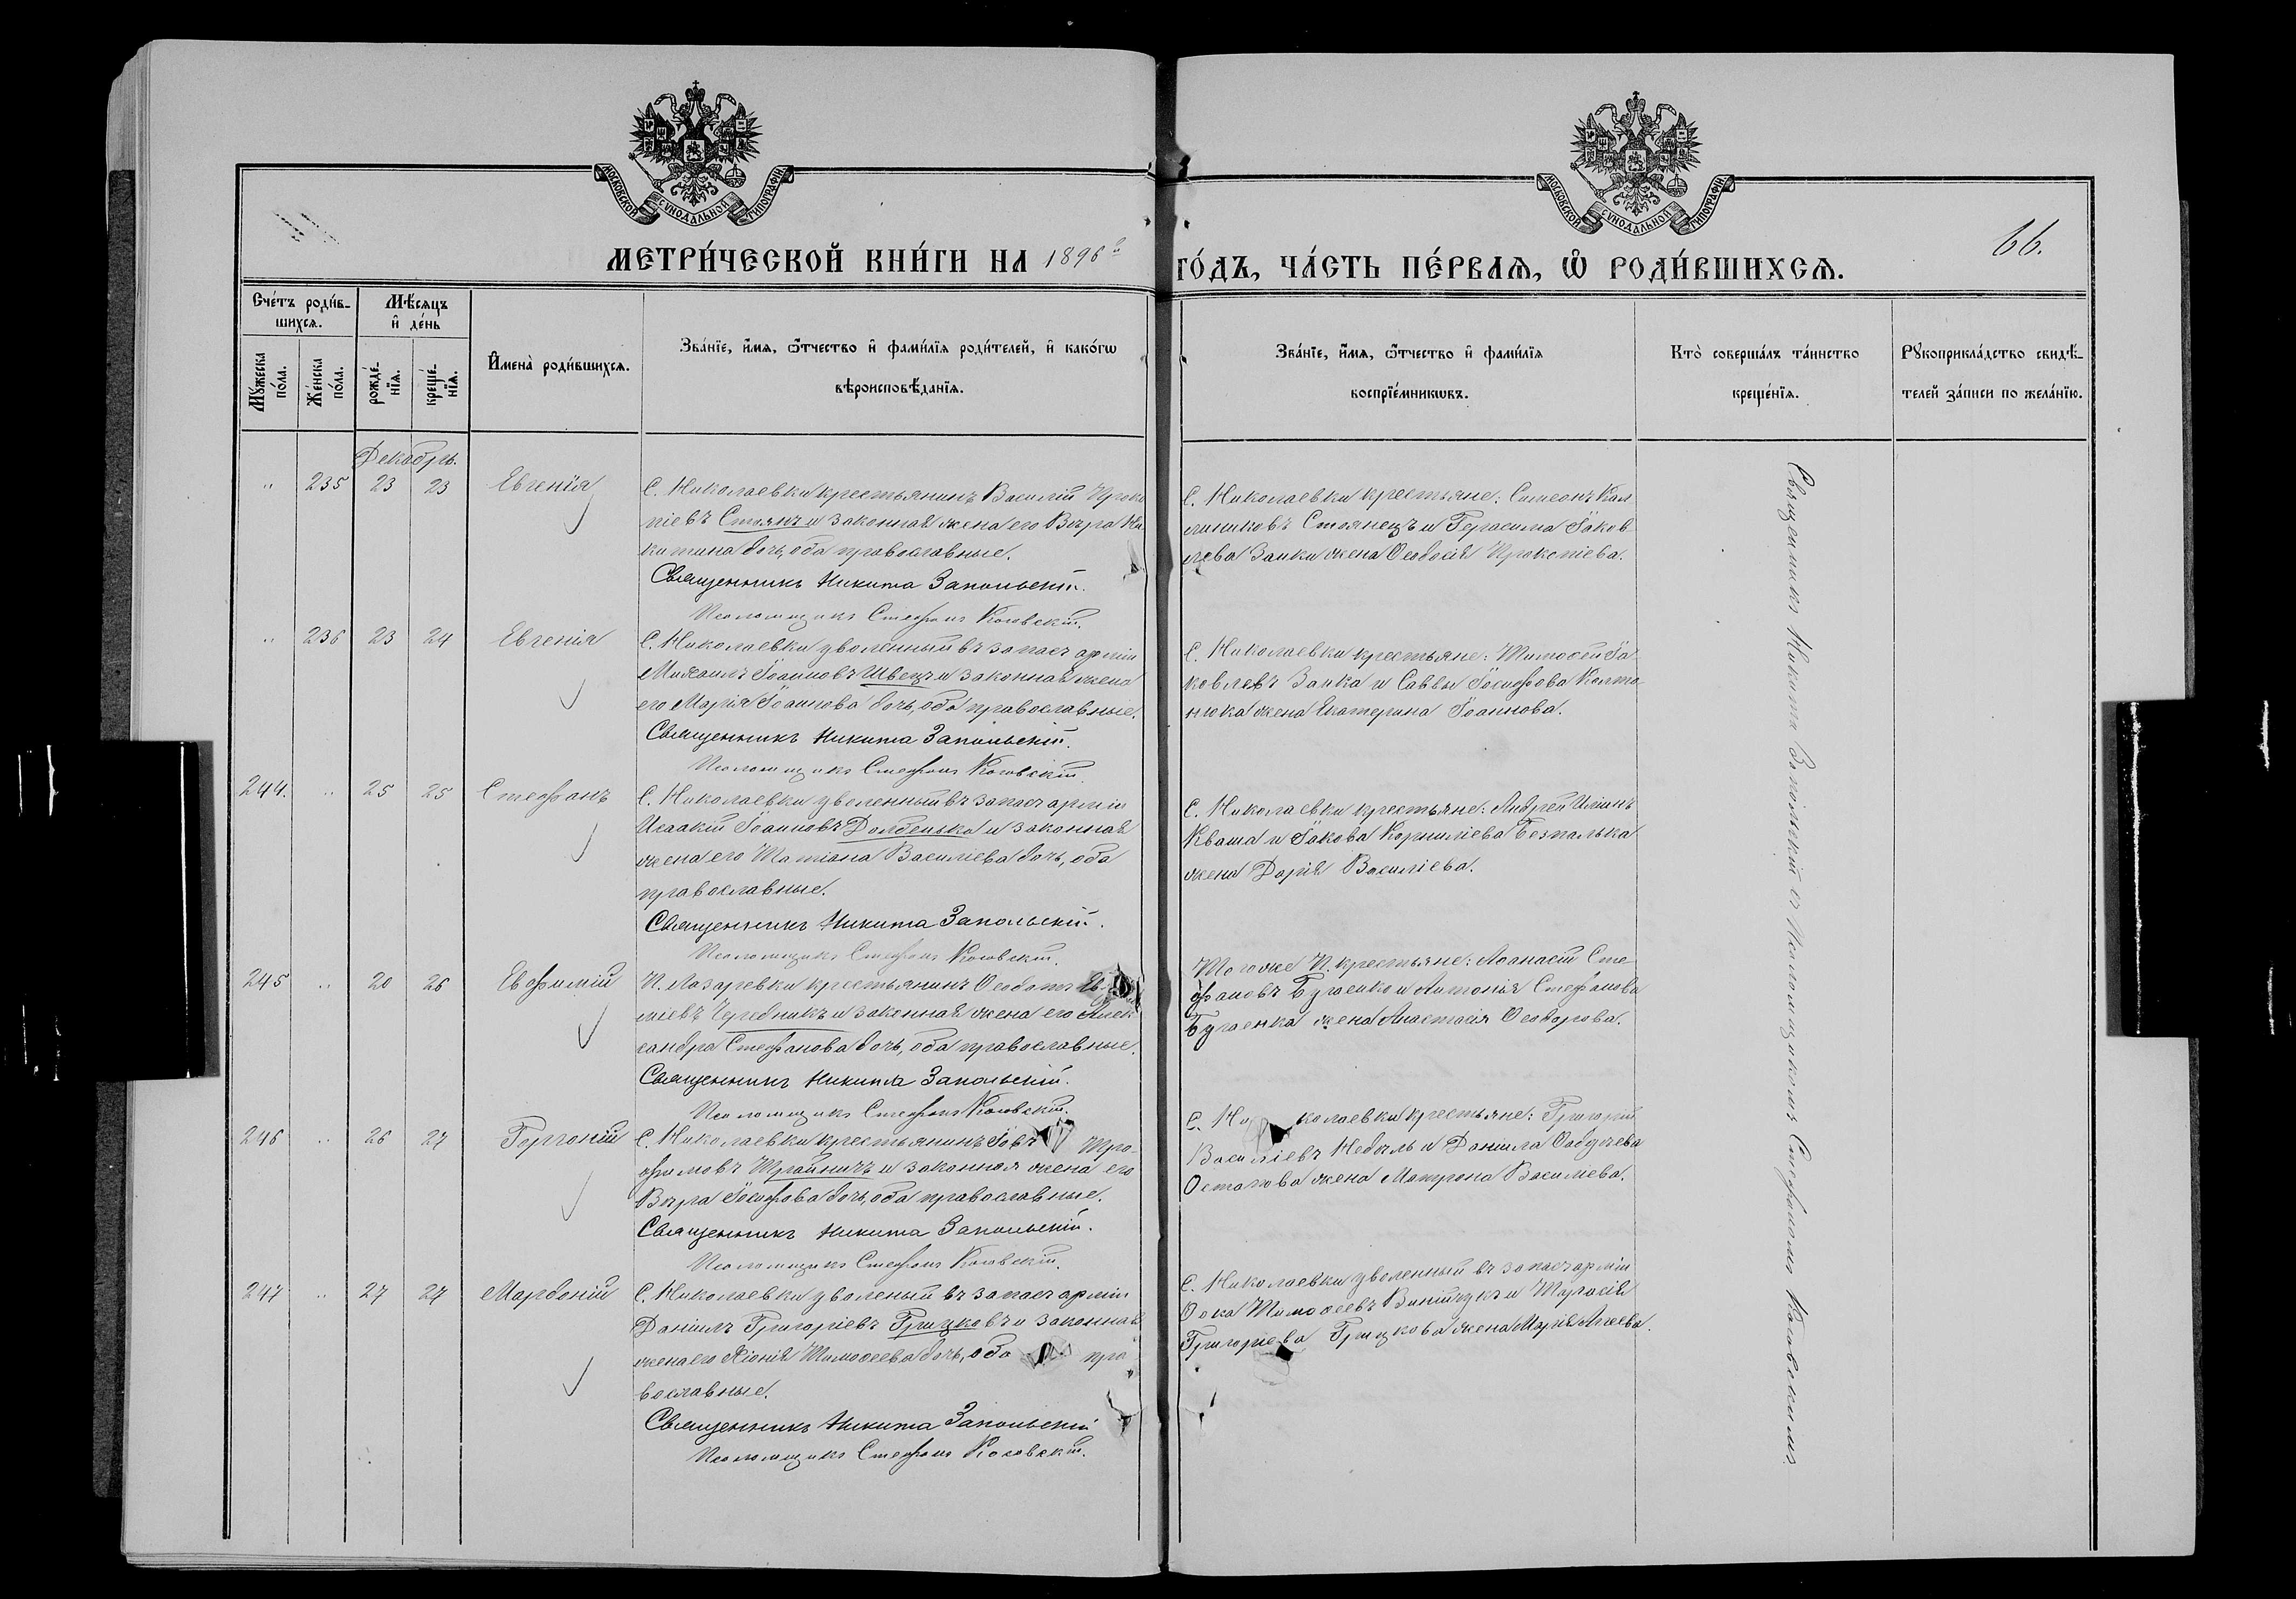 МОСКОВСКОЙ СУНОДАЛЬНОЙ ТИПОГРАФІИ
МОСКОВСКОЙ СУНОДАЛЬНОЙ ТИПОГРАФІИ
66.
МЕТРИ́ЧЕСКОЙ КНИ́ГИ НА 1896 ГО́ДЪ, ЧА́СТЬ ПЕ́РВАЯ, Ѡ РОДИ́ВШИХСЯ.
Сче́тъ роди́в-
шихся.
Мѣ́сяцъ
и҆ де́нь
Му́жеска
по́ла.
Же́нска
по́ла.
рожде́-
нїя.
креще́-
нїя.
И҆мена̀ роди́вшихся.
Зва́нїе, и҆́мя, ѻ҆́тчество и҆ фами́лїя роди́телей, и҆ како́гѡ
вѣроисповѣ́данїя.
Зва́нїе, и҆́мя, ѻ҆́тчество и҆ фами́лїя
воспрїе́мникѡвъ.
Кто̀ соверша́лъ та́инство
креще́нїя.
Рꙋкоприкла́дство свидѣ́-
телей за́писи по жела́нїю.
Декабрь.
" 235 23 23 Евгенія
С. Николаевки крестьянинъ Василій Проко
піевъ Стоянъ и законная жена его Вѣра Ни
китина дочь, оба православные.
Священникъ Никита Запольскій.
Псаломщикъ Стефанъ Коговскій.
С. Николаевки крестьяне: Симеонъ Кал
линиковъ Стоянецъ и Герасима Іаков
лева Заики жена Ѳеодосія Прокопіева.
" 236 23 24 Евгенія
С. Николаевки уволенный въ запасъ арміи
Михаилъ Іоанновъ Швецъ и законная жена
его Марія Іоаннова дочь, оба православные.
Священникъ Никита Запольскій.
Псаломщикъ Стефанъ Коговскій.
С. Николаевки крестьяне: Тимоѳей Іа
ковлевъ Заика и Саввы Іосифова Колто-
нюка жена Екатерина Іоаннова.
244. " 25 25 Стефанъ
С. Николаевки уволенный въ запасъ арміи
Исаакій Іоанновъ Долбенько и законная
жена его Татіана Василіева дочь, оба
православные.
Священникъ Никита Запольскій.
Псаломщикъ Стефанъ Коговскій.
С. Николаевки крестьяне: Андрей Иліинъ
Кваша и Іакова Корниліева Безпалька
жена Дарія Василіева.
245 " 20 26 Евфимій
П. Лазаревки крестьянинъ Ѳеодотъ
міевъ Чередникъ и законная жена его Алек
сандра Стефанова дочь, оба православные.
Священникъ Никита Запольскій.
Псаломщикъ Стефанъ Коговскій.
Того же П. крестьяне: Аѳанасій Сте
фановъ Бугаенко и Антонія Стефанова
Бугаенка жена Анастасія Ѳеодорова.
246 " 26 27 Горгоній
С. Николаевки крестьянинъ Іовъ Тро-
фимовъ Трайничъ и законная жена его
Вѣра Іосифова дочь, оба православные.
Священникъ Никита Запольскій.
Псаломщикъ Стефанъ Коговскій.
С. Ни колаевки крестьяне: Григорій
Василіевъ Недыль и Даніила
Остапова жена Матрона Василіева.
247 " 27 27 Мардоній
С. Николаевки уволеный въ запасъ арміи
Даніилъ Григоріевъ Грицковъ и законная
жена его Хіонія Тимоѳеева дочь, оба пра
вославные.
Священникъ Никита Запольскій
Псаломщикъ Стефанъ Коговскій.
С. Николаевки уволенный въ запасъ арміи
Ѳока Тимоѳеевъ Винійчукъ и Тарасія
Григоріева Грицкова жена Марія Агеева.
Священникъ Никита Запольскій съ Псаломщикомъ Стефаномъ Коговскимъ.